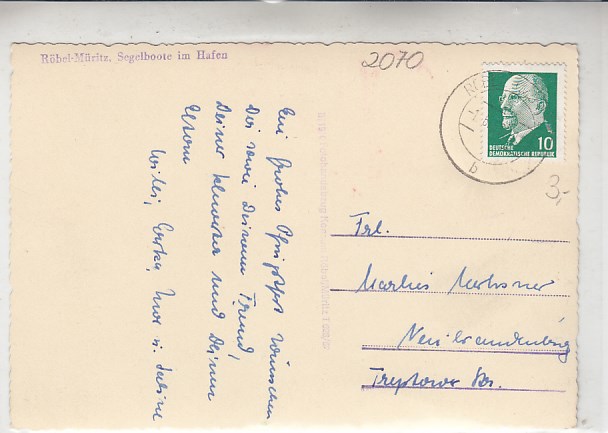 Röbel-Müritz. Segelboote im Hafen
2070
RÖB
b
10
DEUTSCHE
DEMOKRATISCHE REPUBLIK
3,-
Ein frohes Pfingstfest wünschen
Dir sowie Deinem Freund,
Deiner Schwester und Deinen
Eltern
Willi, Erika, u. Sabine
Frl.
Marlies
Neubrandenburg
Treptower Str.